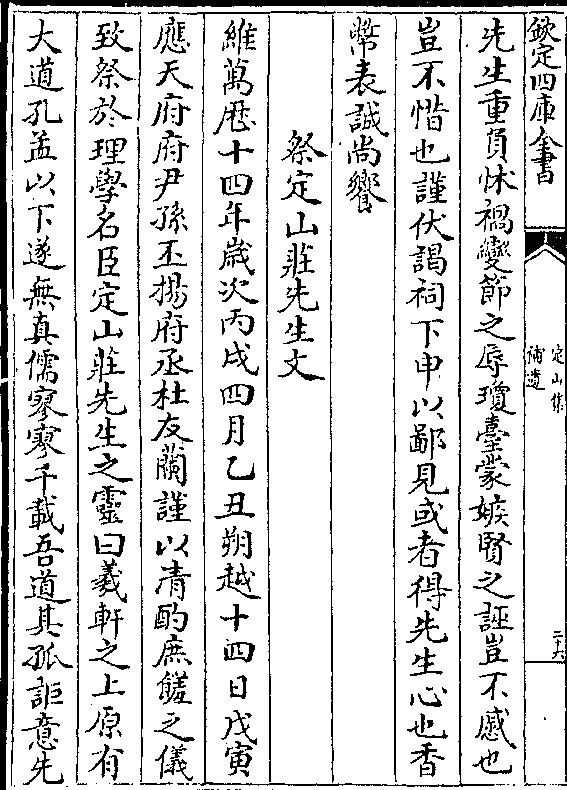 欽定四庫全書
定山集
補遺
二十六
先生重負怵禍變節之辱瓊臺蒙嫉賢之誣豈不慼也
豈不惜也謹伏謁祠下申以鄙見或者得先生心也香
幣表誠尚饗
祭定山莊先生文
維萬厯十四年歲次丙戌四月乙丑朔越十四日戊寅
應天府府尹孫丕揚府丞杜友蘭謹以清酌庶饈之儀
致祭於理學名臣定山莊先生之靈曰羲軒之上原有
大道孔孟以下遂無真儒寥寥千載吾道其孤詎意先